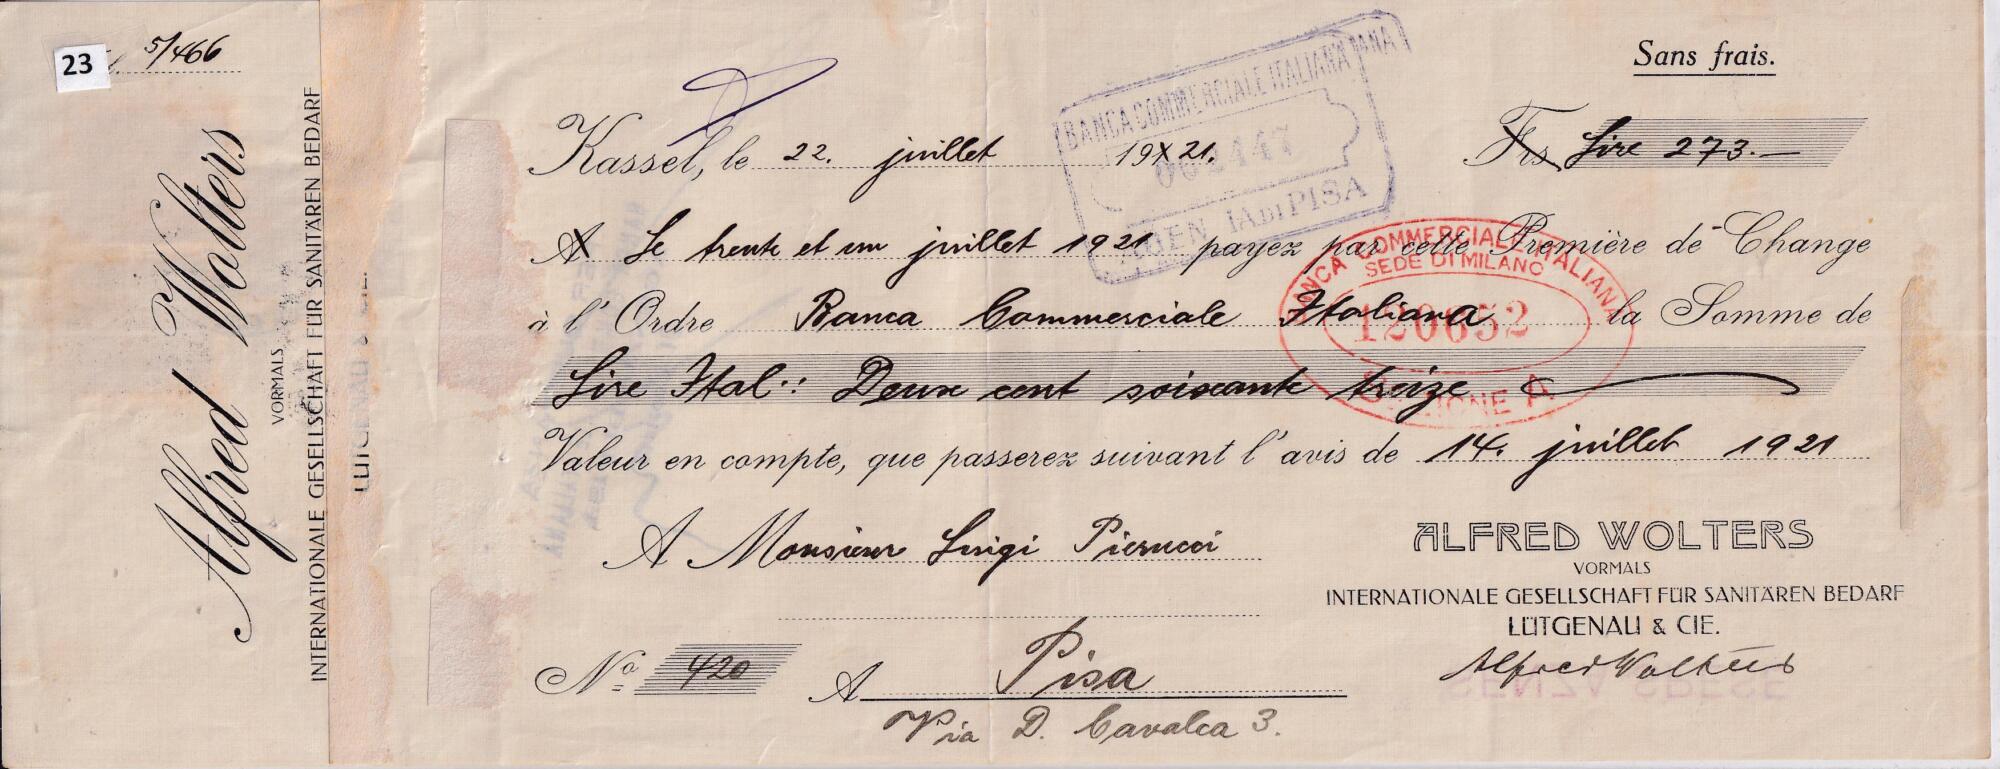 23
5/466
Alfred Wolters
VORMALS
INTERNATIONALE GESELLSCHAFT FÜR SANITÄREN BEDARF
Sans frais.
Kassel, le 22. juillet 1921.
Frs Lire 273.—
BANCA COMMERCIALE ITALIANA
PISA
A Le trente et un juillet 1921 payez par cette Première de Change
BANCA COMMERCIALE ITALIANA
SEDE DI MILANO
120652
à l'Ordre Banca Commerciale Italiana la Somme de
Lire Ital.: Deux cent soixante treize
Valeur en compte, que passerez suivant l'avis de 14. juillet 1921
A Monsieur Luigi Pierucci
ALFRED WOLTERS
VORMALS
INTERNATIONALE GESELLSCHAFT FÜR SANITÄREN BEDARF
LÜTGENAU & CIE.
Alfred Wolters
No 420 A Pisa
Via D. Cavalca 3.
SENZA SPESE